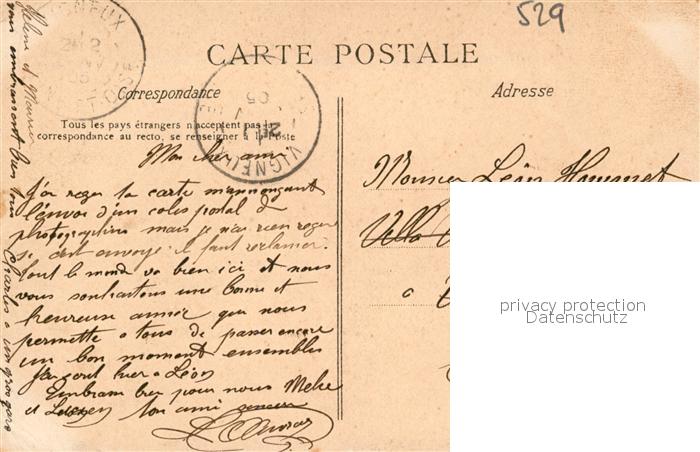 529
VIGNEUX
CARTE POSTALE
Correspondance
Adresse
Tous les pays étrangers n'acceptent pas la
correspondance au recto, se renseigner à la Poste
VIGNEUX
Mon cher ami
J'ai reçu ta carte m'annonçant
l'envoi d'un colis postal de
photographies mais je n'ai rien reçu
si c'est envoyé il faut réclamer.
Tout le monde va bien ici et nous
vous souhaitons une bonne et
heureuse année que nous
permette a tous de passer encore
un bon moment ensembles
J'ai écrit hier a Léon
Embrasse bien pour nous
et Lucien ton ami
Monsieur Léon
Villa
a
privacy protection
Datenschutz
Hélène et Maurice
vous embrassent bien tous
Charles a un gros